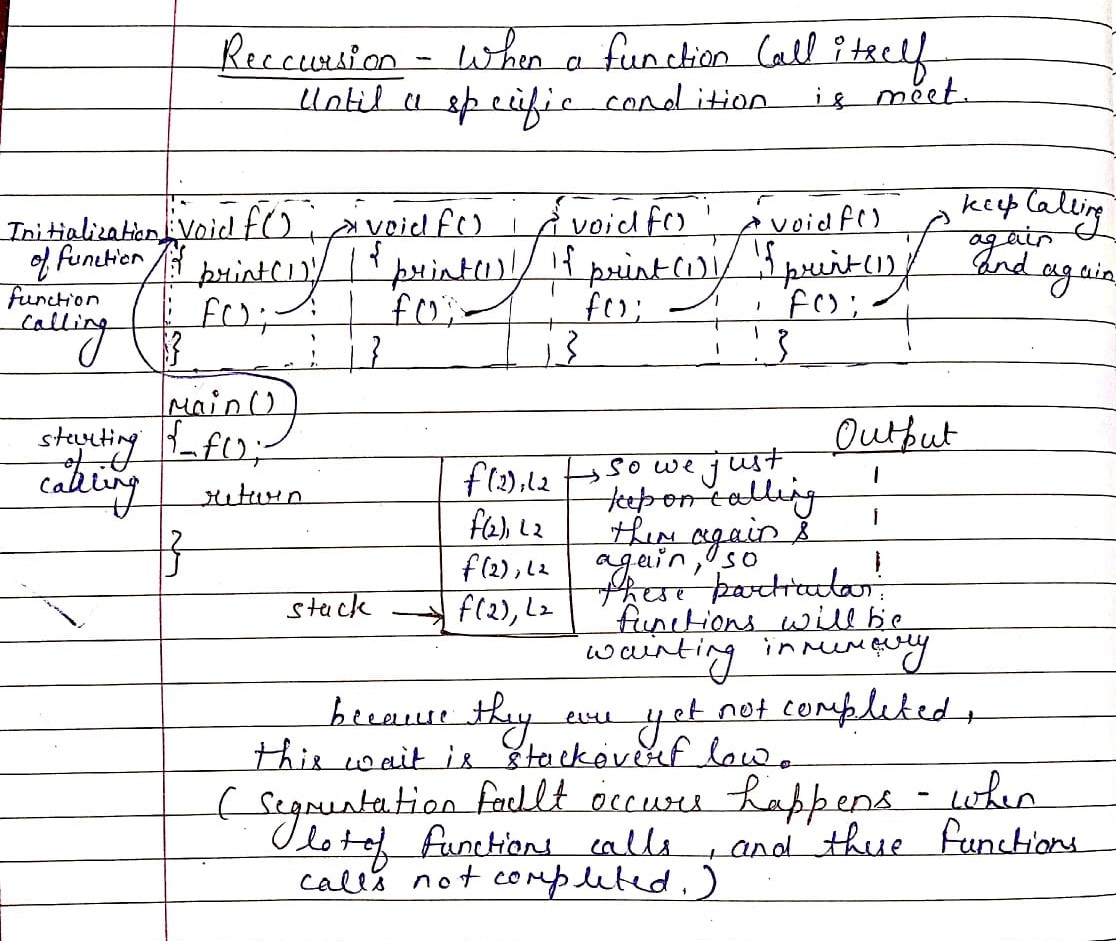 Reccursion - When a function Call itself
Until a specific condition is meet.
Initialization of function
function calling
void f()
{ print(1)
f();
}
void f()
{ print(1)
f();
}
void f()
{ print(1)
f();
}
void f()
{ print(1)
f();
}
keep Calling
again
and again
starting
of
calling
Main()
{ f();
return
}
stack
f(2), L2
f(2), L2
f(2), L2
f(2), L2
so we just
keep on calling
them again &
again, so
these particular
functions will be
wainting in memory
Output
1
1
1
because they are yet not completed,
this wait is stackoverflow.
( Segmentation faullt occurs happens - when
lot of functions calls , and these functions
calls not completed. )